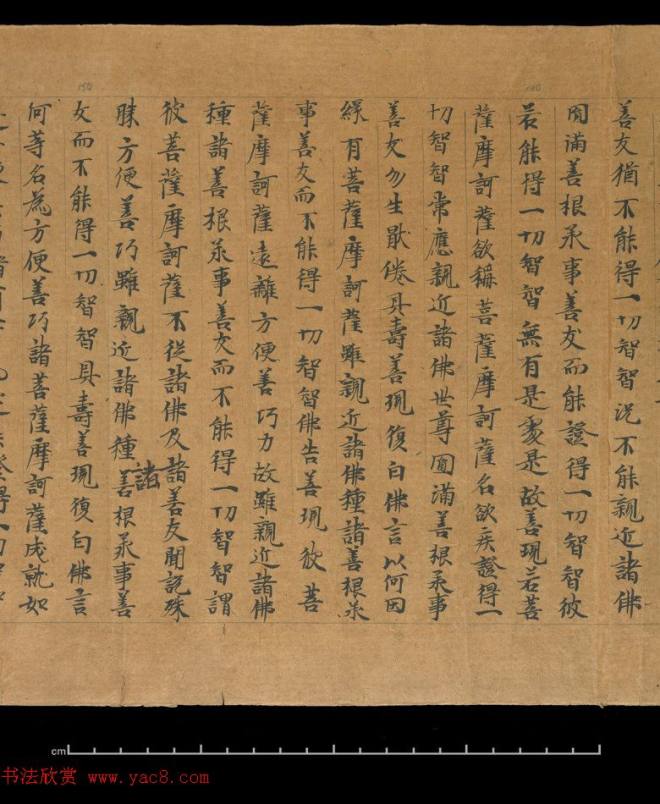 善友猶不能得一切智智况不能親近諸佛
圓滿善根承事善友而能證得一切智智彼
若能得一切智智無有是處是故善現若菩
薩摩訶薩欲稱菩薩摩訶薩名欲疾證得一
切智智常應親近諸佛世尊圓滿善根承事
善友勿生猒倦具壽善現復白佛言以何因
緣有菩薩摩訶薩雖親近諸佛種諸善根承
事善友而不能得一切智智佛告善現彼菩
薩摩訶薩遠離方便善巧力故雖親近諸佛
種諸善根承事善友而不能得一切智智謂
彼菩薩摩訶薩不從諸佛及諸善友聞說殊
勝方便善巧雖親近諸佛種諸善根承事善
友而不能得一切智智具壽善現復白佛言
何等名為方便善巧諸菩薩摩訶薩成就如
150
140
cm
书法欣赏 www.yac8.com